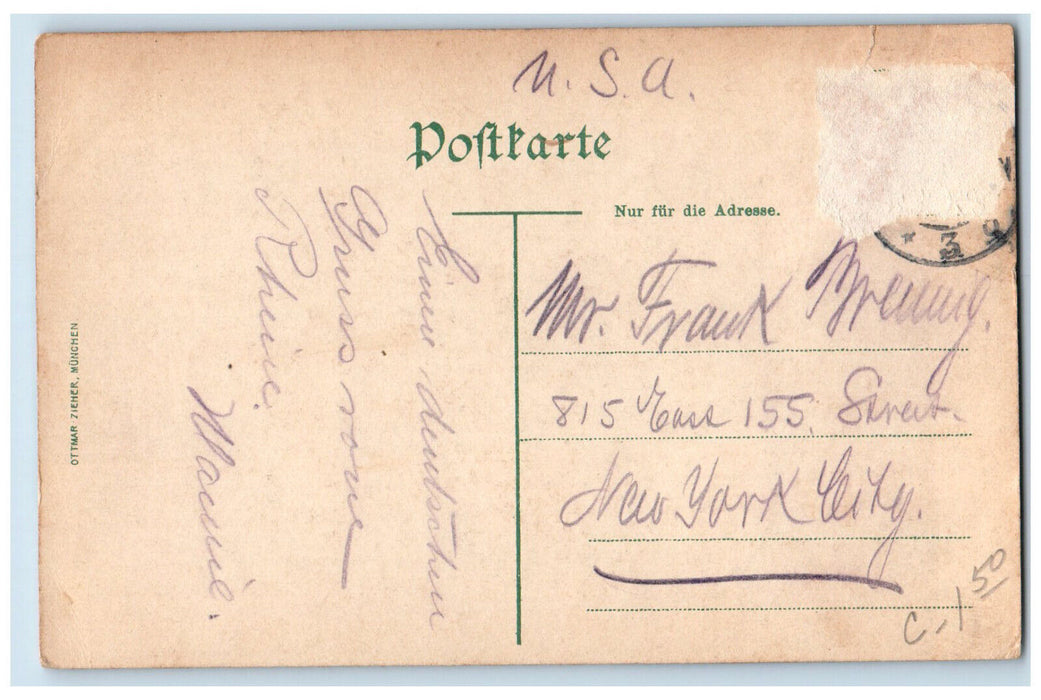 U.S.A.
Postkarte
Nur für die Adresse.
Einen deutschen
Gruss vom
Rhein.
Mamie.
Mr. Frank
815 East 155. Street.
New York City.
OTTMAR ZIEHER, MÜNCHEN
3
C-1 50